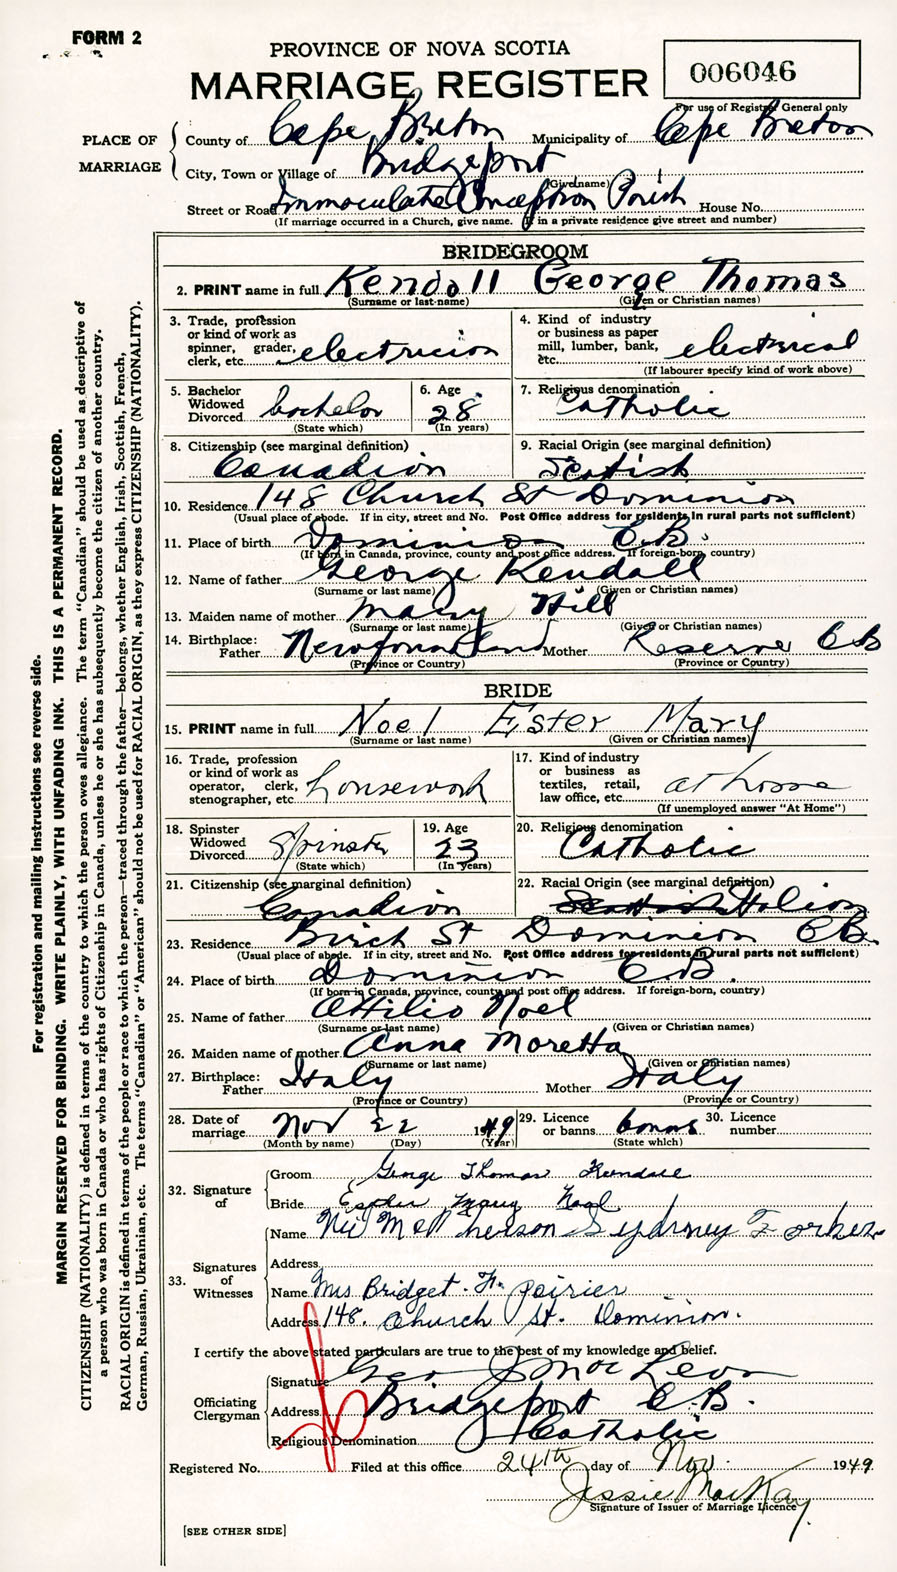 FORM 2
PROVINCE OF NOVA SCOTIA
MARRIAGE REGISTER
006046
For use of Registrar General only
PLACE OF MARRIAGE
County of Cape Breton Municipality of Cape Breton
City, Town or Village of Bridgeport
(Give name)
Street or Road Immaculate Conception Parish House No.
(If marriage occurred in a Church, give name. If in a private residence give street and number)
BRIDEGROOM
2. PRINT name in full Kendall George Thomas
(Surname or last name) (Given or Christian names)
3. Trade, profession or kind of work as spinner, grader, clerk, etc. electricion
4. Kind of industry or business as paper mill, lumber, bank, etc. electrical
(If labourer specify kind of work above)
5. Bachelor Widowed Divorced bachelor
(State which)
6. Age 28
(In years)
7. Religious denomination Catholic
8. Citizenship (see marginal definition) Canadian
9. Racial Origin (see marginal definition) Scotish
10. Residence 148 Church St Dominion
(Usual place of abode. If in city, street and No. Post Office address for residents in rural parts not sufficient)
11. Place of birth Dominion C.B.
(If born in Canada, province, county and post office address. If foreign-born, country)
12. Name of father George Kendall
(Surname or last name) (Given or Christian names)
13. Maiden name of mother Mary Hill
(Surname or last name) (Given or Christian names)
14. Birthplace: Father Newfoundland Mother Reserve C B
(Province or Country) (Province or Country)
BRIDE
15. PRINT name in full Noel Ester Mary
(Surname or last name) (Given or Christian names)
16. Trade, profession or kind of work as operator, clerk, stenographer, etc. housework
17. Kind of industry or business as textiles, retail, law office, etc. at home
(If unemployed answer "At Home")
18. Spinster Widowed Divorced Spinster
(State which)
19. Age 23
(In years)
20. Religious denomination Catholic
21. Citizenship (see marginal definition) Canadian
22. Racial Origin (see marginal definition) Scottish Italian
23. Residence Birch St Dominion C B.
(Usual place of abode. If in city, street and No. Post Office address for residents in rural parts not sufficient)
24. Place of birth Dominion C.B.
(If born in Canada, province, county and post office address. If foreign-born, country)
25. Name of father Attilio Noel
(Surname or last name) (Given or Christian names)
26. Maiden name of mother Anna Moretta
(Surname or last name) (Given or Christian names)
27. Birthplace: Father Italy Mother Italy
(Province or Country) (Province or Country)
28. Date of marriage Nov 22 1949
(Month by name) (Day) (Year)
29. Licence or banns banns
(State which)
30. Licence number
32. Signature of
Groom George Thomas Kendall
Bride Esther Mary Noel
33. Signatures of Witnesses
Name McPherson Sydney Forks
Address
Name Mrs Bridget. F. Poirier
Address 148. Church St. Dominion.
I certify the above stated particulars are true to the best of my knowledge and belief.
Officiating Clergyman
Signature Geo J MacLeon
Address Bridgeport C.B.
Religious Denomination Catholic
Registered No. Filed at this office 24th day of Nov. 1949
Jessie MacKay
Signature of Issuer of Marriage Licence
[SEE OTHER SIDE]
For registration and mailing instructions see reverse side.
MARGIN RESERVED FOR BINDING. WRITE PLAINLY, WITH UNFADING INK. THIS IS A PERMANENT RECORD.
CITIZENSHIP (NATIONALITY) is defined in terms of the country to which the person owes allegiance. The term "Canadian" should be used as descriptive of
a person who was born in Canada or who has rights of Citizenship in Canada, unless he or she has subsequently become the citizen of another country.
RACIAL ORIGIN is defined in terms of the people or race to which the person—traced through the father—belongs, whether English, Irish, Scottish, French,
German, Russian, Ukrainian, etc. The terms "Canadian" or "American" should not be used for RACIAL ORIGIN, as they express CITIZENSHIP (NATIONALITY).